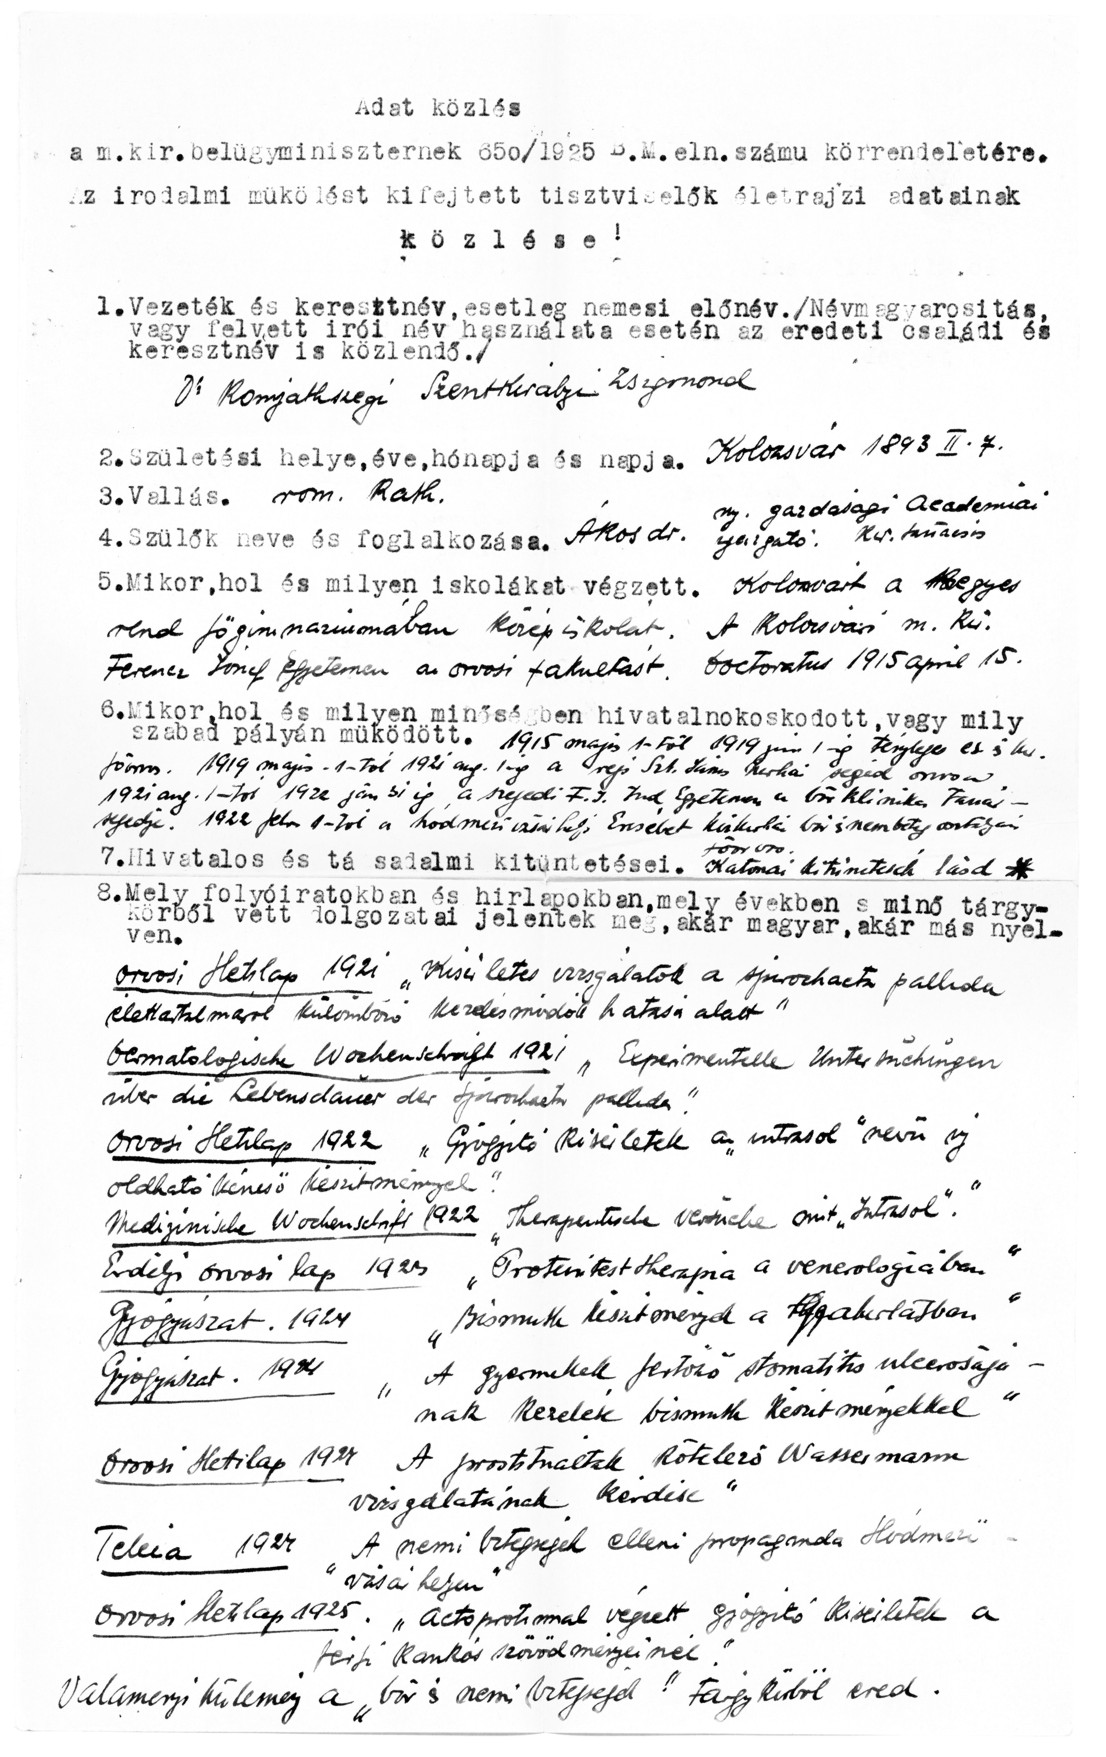 Adat közlés
a m.kir.belügyminiszternek 650/1925 B.M.eln.számu körrendeletére.
Az irodalmi müködést kifejtett tisztviselők életrajzi adatainak
k ö z l é s e !
1.Vezeték és keresztnév,esetleg nemesi előnév./Névmagyarositás,
vagy felvett irói név használata esetén az eredeti családi és
keresztnév is közlendő./
Dr Komjáthszegi Szentkirályi Zsigmond
2.Születési helye,éve,hónapja és napja. Kolozsvár 1893 II. 7.
3.Vallás. rom. Kath.
4.Szülők neve és foglalkozása. Ákos dr. ny. gazdasági Academiai
igazgató. Kir. tanácsos
5.Mikor,hol és milyen iskolákat végzett. Kolozsvárt a kegyes
rend főgimnaziumában középiskolát. A Kolozsvári m. Kir.
Ferencz József Egyetemen az orvosi fakultást. Doctoratus 1915 april 15.
6.Mikor,hol és milyen minőségben hivatalnokoskodott,vagy mily
szabad pályán müködött. 1915 majus 1-től 1919 jan 1-ig tényleges
főorvos. 1919 majus 1-től 1921 aug. 1-ig a Szt. János segéd orvosa
1921 aug. 1-től 1922 jan 31 ig a szegedi F.J. Tud Egyetemen a bőrklinika tanár-
segédje. 1922 febr 1-től a hódmezővásárhelyi Erzsébet bőr és nembeteg osztályán
főorvos.
7.Hivatalos és tá sadalmi kitüntetései. Katonai kitüntetések lásd *
8.Mely folyóiratokban és hirlapokban,mely években s minő tárgy-
körből vett dolgozatai jelentek meg,akár magyar,akár más nyel-
ven.
Orvosi Hetilap 1921 „Kisérletes vizsgálatok a spirochaeta pallida
élettartalmáról különböző kezelésmódok hatása alatt"
Dermatologische Wochenschrift 1921 „Experimentelle Untersuchungen
über die Lebensdauer der spirochaeta pallida".
Orvosi Hetilap 1922 „Gyógyító kisérletek a „intrasol" nevü új
oldható kéneső készitménnyel".
Medizinische Wochenschrift 1922 „Therapeutische versuche mit „Intrasol"."
Erdélyi orvosi lap 1923 „Proteintest therapia a venerologiában"
Gyógyászat. 1924 „Bismuth készitmények a gyakorlatban"
Gyógyászat. 1924 „A gyermekek fertőző stomatitis ulcerosájá-
nak kezelése bismuth készitményekkel"
Orvosi Hetilap 1924 A prostituáltak kötelező Wassermann
vizsgálatának kérdése"
Teleia 1924 „A nemi betegségek elleni propaganda Hódmező-
vásárhelyen"
Orvosi Hetilap 1925. „Actoprotinnal végzett gyógyító kisérletek a
férfi kankós szövődményeinél".
Valamennyi külemény a „bőr és nemi betegségek" tárgyköréből ered.